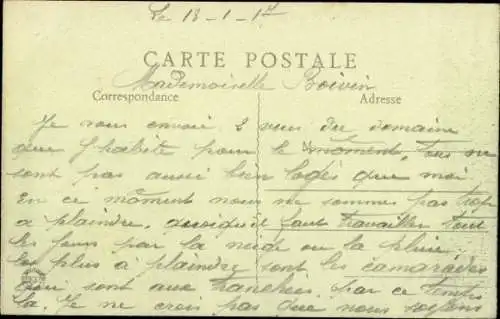 Le 13-1-17
CARTE POSTALE
Mademoiselle Boivin
Correspondance
Adresse
Je vous envoie 2 vues du domaine
que j'habite pour le moment, tous ne
sont pas aussi bien logés que moi
En ce moment nous ne sommes pas trop
a plaindre, quoiqu'il faut travailler tout
les jours par la neige ou la pluie
les plus à plaindre sont les camarades
qui sont aux tranchées, par ce temps
la. Je ne crois pas que nous soyons